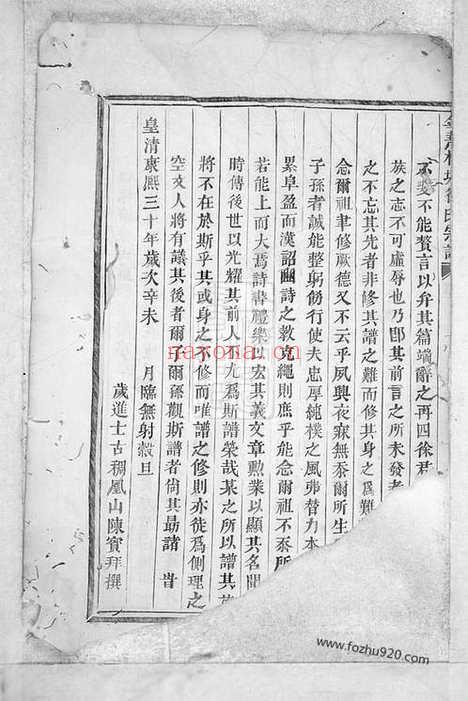 不斐不能贅言以弁其篇端辭之再四徐君
族之志不可虛辱也乃卽其前言之所未發者
之不忘其先者非修其譜之難而修其身之爲難
念爾祖聿修厥德又不云乎夙興夜寐無忝爾所生
子孫者誠能整躬飭行使夫忠厚純樸之風弗替力本
累阜盈而漢詔豳詩之教克繩則庶乎能念爾祖不忝所
若能上而大焉詩書禮樂以宏其義文章勲業以顯其名聞
時傳後世以光耀其前人則尤爲斯譜榮哉某之所以譜其族
將不在於斯乎其或身之不修而唯譜之修則亦徒爲側理之
空文人將有議其後者爾子爾孫觀斯譜者尙其勗諸 旹
皇清康熙三十年歲次辛未 月臨無射穀旦
歲進士古稠鳳山陳賓拜撰
nayona.cn
www.fozhu920.com